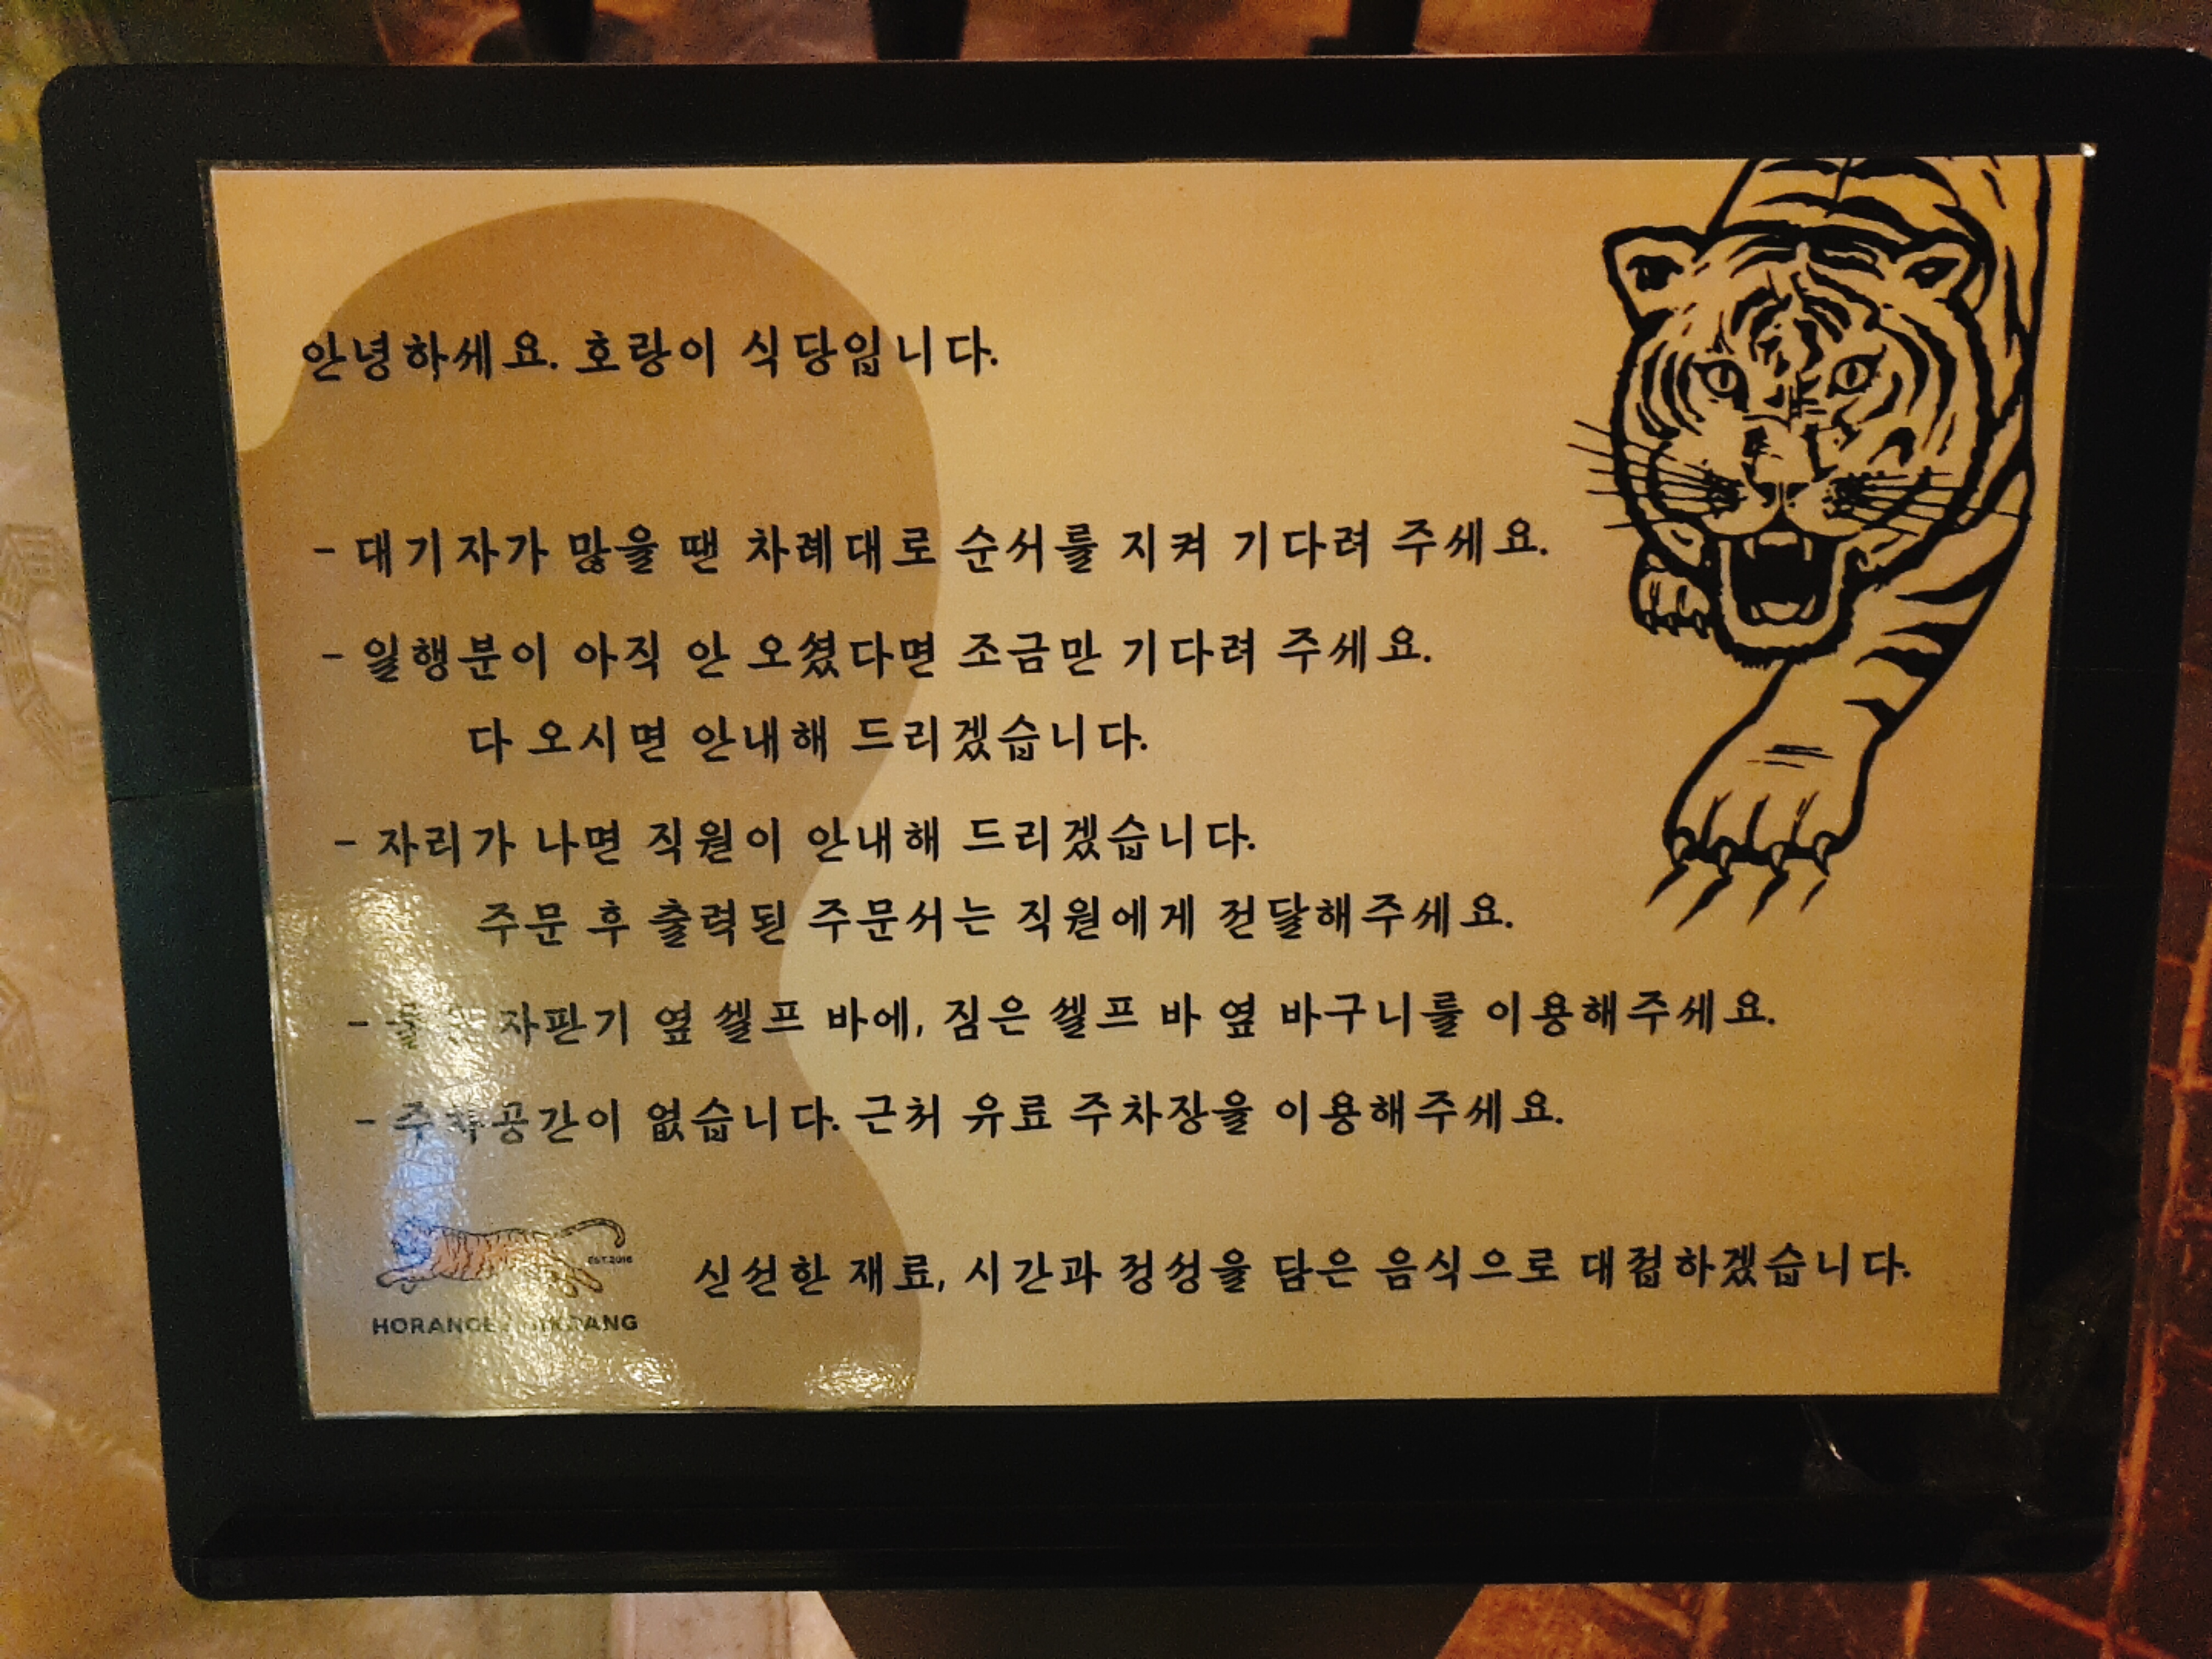 안녕하세요. 호랑이 식당입니다.
- 대기자가 많을 땐 차례대로 순서를 지켜 기다려 주세요.
- 일행분이 아직 안 오셨다면 조금만 기다려 주세요.
다 오시면 안내해 드리겠습니다.
- 자리가 나면 직원이 안내해 드리겠습니다.
주문 후 출력된 주문서는 직원에게 전달해주세요.
- 자판기 옆 셀프 바에, 짐은 셀프 바 옆 바구니를 이용해주세요.
- 주차공간이 없습니다. 근처 유료 주차장을 이용해주세요.
EST.2016
신선한 재료, 시간과 정성을 담은 음식으로 대접하겠습니다.